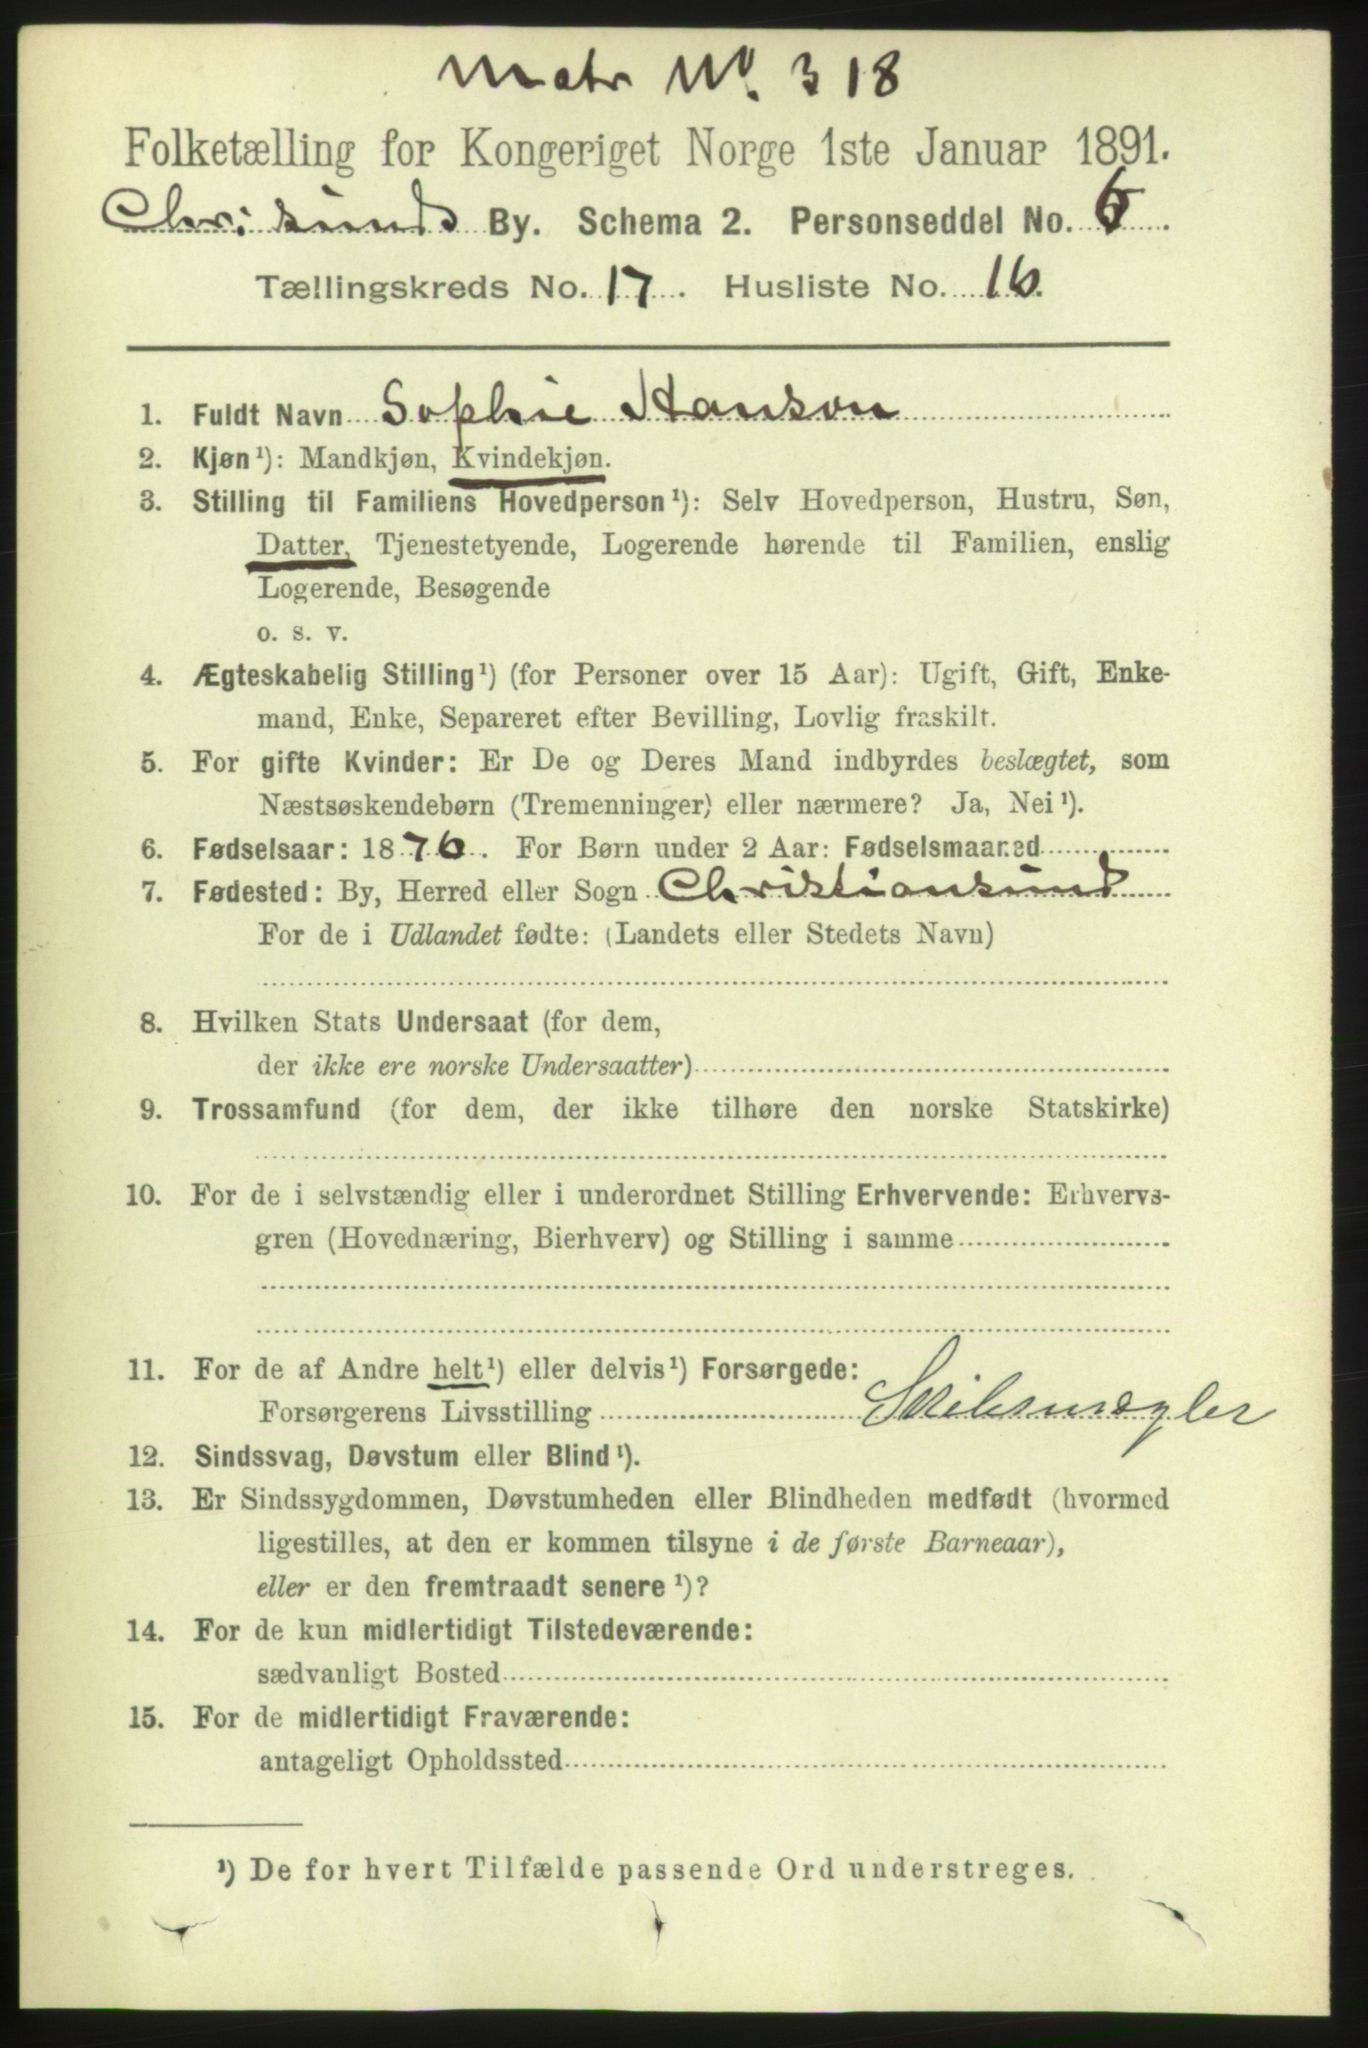 Matr No. 318
Folketælling for Kongeriget Norge 1ste Januar 1891.
Chr:sunds By. Schema 2. Personseddel No. 6.
Tællingskreds No. 17. Husliste No. 16.
1. Fuldt Navn Sophie Hanson
2. Kjøn¹): Mandkjøn, Kvindekjøn.
3. Stilling til Familiens Hovedperson¹): Selv Hovedperson, Hustru, Søn,
Datter, Tjenestetyende, Logerende hørende til Familien, enslig
Logerende, Besøgende
o. s. v.
4. Ægteskabelig Stilling¹) (for Personer over 15 Aar): Ugift, Gift, Enke-
mand, Enke, Separeret efter Bevilling, Lovlig fraskilt.
5. For gifte Kvinder: Er De og Deres Mand indbyrdes beslægtet, som
Næstsøskendebørn (Tremenninger) eller nærmere? Ja, Nei¹).
6. Fødselsaar: 1876. For Børn under 2 Aar: Fødselsmaaned
7. Fødested: By, Herred eller Sogn Christiansund
For de i Udlandet fødte: (Landets eller Stedets Navn)
8. Hvilken Stats Undersaat (for dem,
der ikke ere norske Undersaatter)
9. Trossamfund (for dem, der ikke tilhøre den norske Statskirke)
10. For de i selvstændig eller i underordnet Stilling Erhvervende: Erhvervs-
gren (Hovednæring, Bierhverv) og Stilling i samme
11. For de af Andre helt¹) eller delvis¹) Forsørgede:
Forsørgerens Livsstilling Skibsmægler
12. Sindssvag, Døvstum eller Blind¹).
13. Er Sindssygdommen, Døvstumheden eller Blindheden medfødt (hvormed
ligestilles, at den er kommen tilsyne i de første Barneaar),
eller er den fremtraadt senere¹)?
14. For de kun midlertidigt Tilstedeværende:
sædvanligt Bosted
15. For de midlertidigt Fraværende:
antageligt Opholdssted
¹) De for hvert Tilfælde passende Ord understreges.